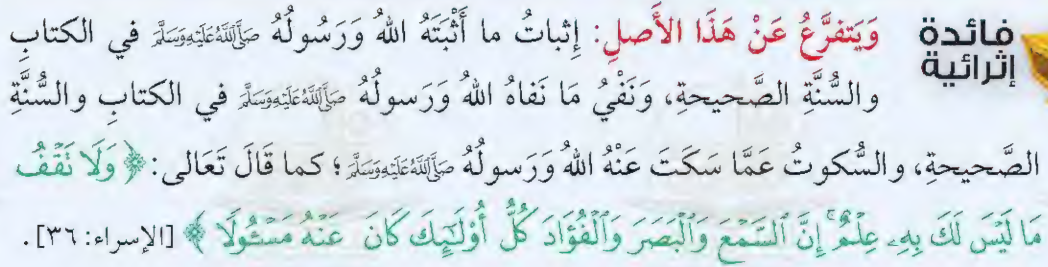 فائدة إثرائية
وَيَتفرَّعُ عَنْ هَذَا الأَصلِ: إِثباتُ ما أَثْبَتَهُ اللهُ وَرَسُولُهُ ﷺ في الكتابِ
والسُّنَّةِ الصَّحيحةِ، وَنَفْيُ مَا نَفاهُ اللهُ وَرَسولُهُ ﷺ في الكتابِ والسُّنَّةِ
الصَّحيحةِ، والسُّكوتُ عَمَّا سَكتَ عَنْهُ اللهُ وَرَسولُهُ ﷺ؛ كما قَالَ تَعَالى: ﴿وَلَا تَقْفُ
مَا لَيْسَ لَكَ بِهِۦ عِلْمٌ ۚ إِنَّ ٱلسَّمْعَ وَٱلْبَصَرَ وَٱلْفُؤَادَ كُلُّ أُو۟لَـٰٓئِكَ كَانَ عَنْهُ مَسْـُٔولًا﴾ [الإسراء: ٣٦].